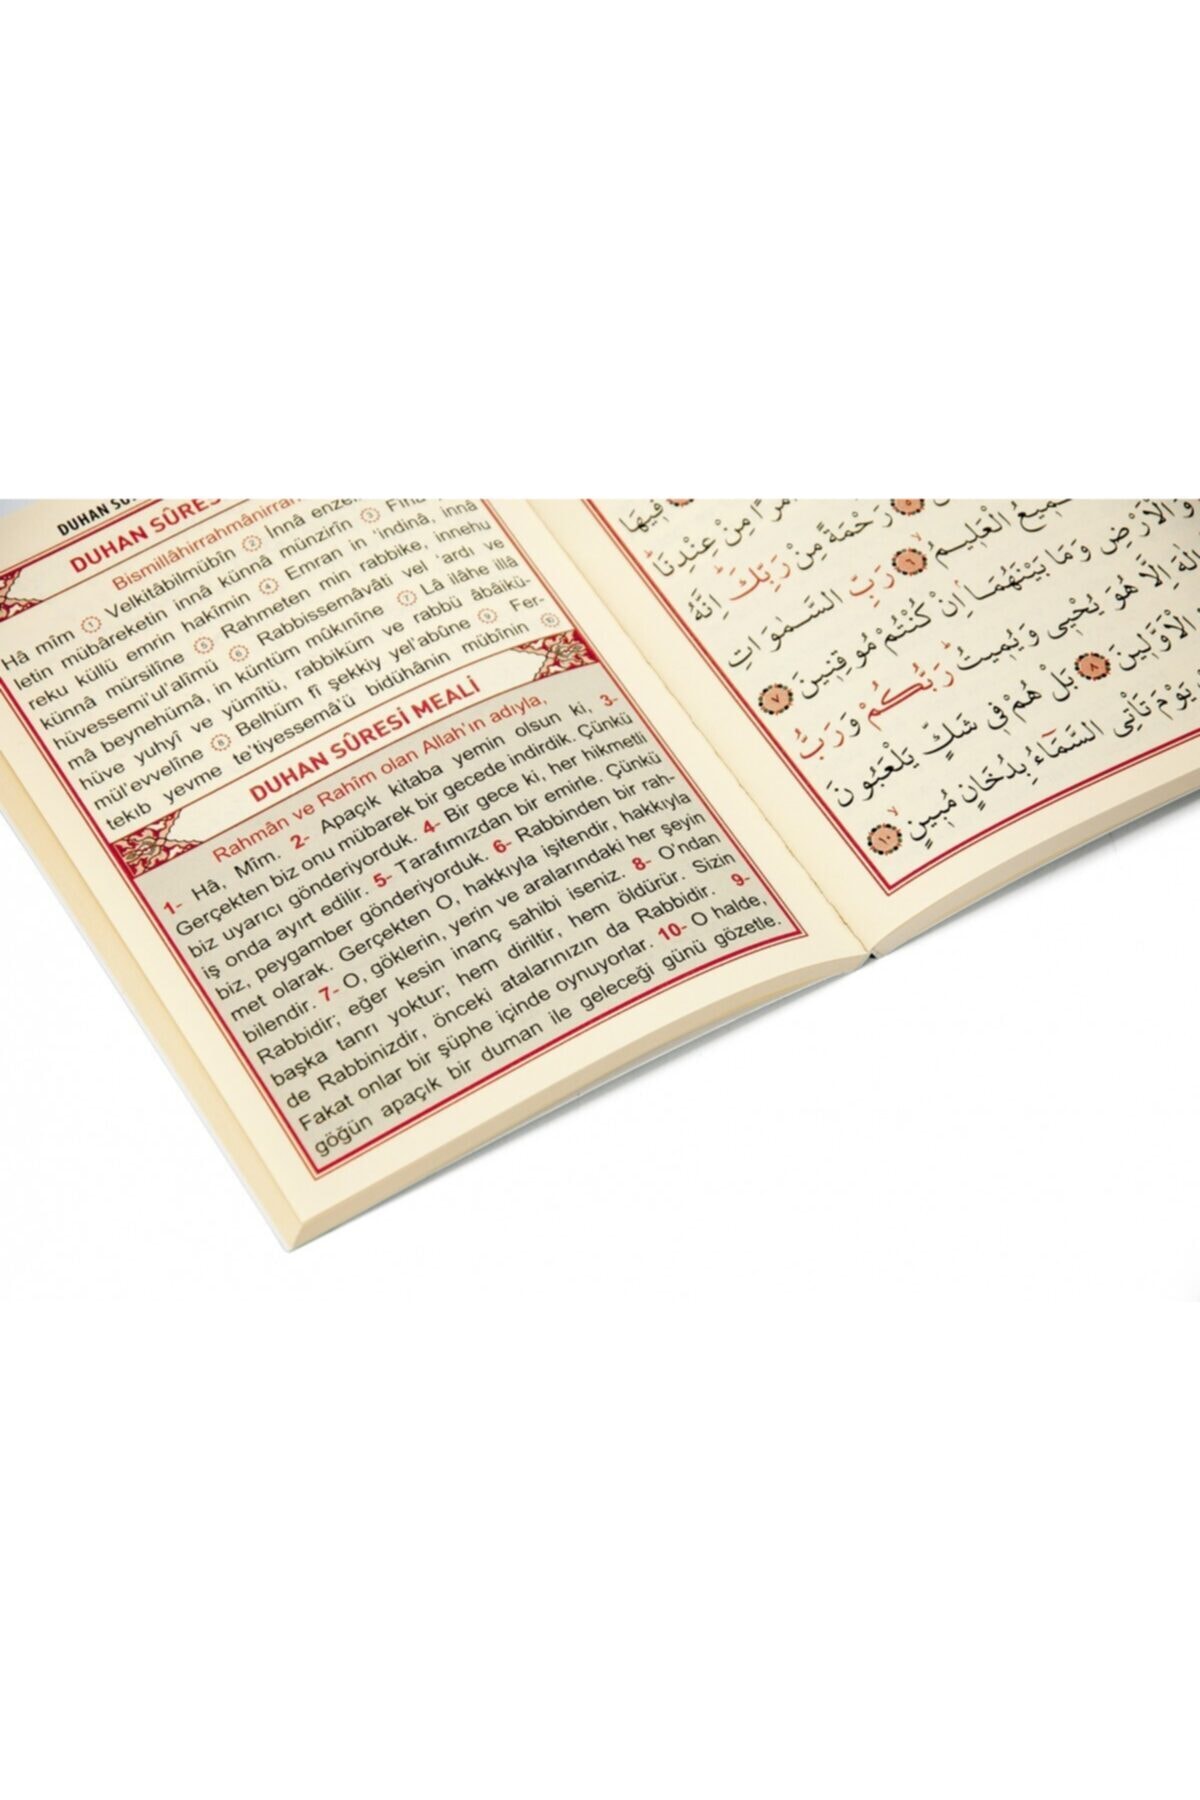 DUHAN
DUHAN SÛRES
Bismillâhirrahmânirra
Hâ mîm ① Velkitâbilmübîn ② İnnâ enzel
letin mübâreketin innâ künnâ münzirîn ③ Fîhâ
reku küllü emrin hakîmin ④ Emran in ‘indinâ, innâ
künnâ mürsilîne ⑤ Rahmeten min rabbike, innehu
hüvessemi'ul'alîmü ⑥ Rabbissemâvâti vel ’ardı ve
mâ beynehümâ, in küntüm mûkınîne ⑦ Lâ ilâhe illâ
hüve yuhyî ve yümîtü, rabbiküm ve rabbü âbâikü-
mül'evvelîne ⑧ Belhüm fî şekkiy yel'abûne ⑨ Fer-
tekıb yevme te'tiyessemâ'ü bidühânin mübînin ⑩
DUHAN SÛRESİ MEALİ
Rahmân ve Rahîm olan Allah'ın adıyla,
1- Hâ, Mîm. 2- Apaçık kitaba yemin olsun ki, 3-
Gerçekten biz onu mübarek bir gecede indirdik. Çünkü
biz uyarıcı gönderiyorduk. 4- Bir gece ki, her hikmetli
iş onda ayırt edilir. 5- Tarafımızdan bir emirle. Çünkü
biz, peygamber gönderiyorduk. 6- Rabbinden bir rah-
met olarak. Gerçekten O, hakkıyla işitendir, hakkıyla
bilendir. 7- O, göklerin, yerin ve aralarındaki her şeyin
Rabbidir; eğer kesin inanç sahibi iseniz. 8- O'ndan
başka tanrı yoktur; hem diriltir, hem öldürür. Sizin
de Rabbinizdir, önceki atalarınızın da Rabbidir. 9-
Fakat onlar bir şüphe içinde oynuyorlar. 10- O halde,
göğün apaçık bir duman ile geleceği günü gözetle.
فِيهَا
اَمْرًا مِنْ عِنْدِنَا
رَحْمَةً مِنْ رَبِّكَ اِنَّهُ
السَّمِيعُ الْعَلِيمُ ٦ رَبِّ السَّمٰوَاتِ
وَالْاَرْضِ وَمَا بَيْنَهُمَا اِنْ كُنْتُمْ مُوقِنِينَ ٧
اِلٰهَ اِلَّا هُوَ يُحْيٖى وَيُمِيتُ رَبُّكُمْ وَرَبُّ
الْاَوَّلِينَ ٨ بَلْ هُمْ فٖى شَكٍّ يَلْعَبُونَ
يَوْمَ تَأْتِى السَّمَاءُ بِدُخَانٍ مُبِينٍ ١٠